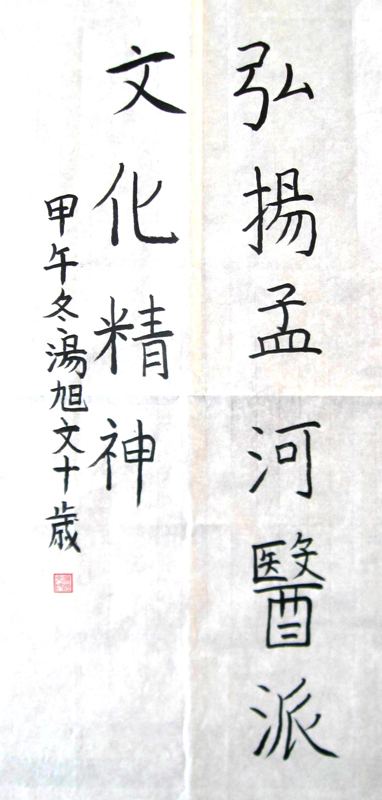 弘揚孟河醫派
文化精神
甲午冬湯旭文十歲